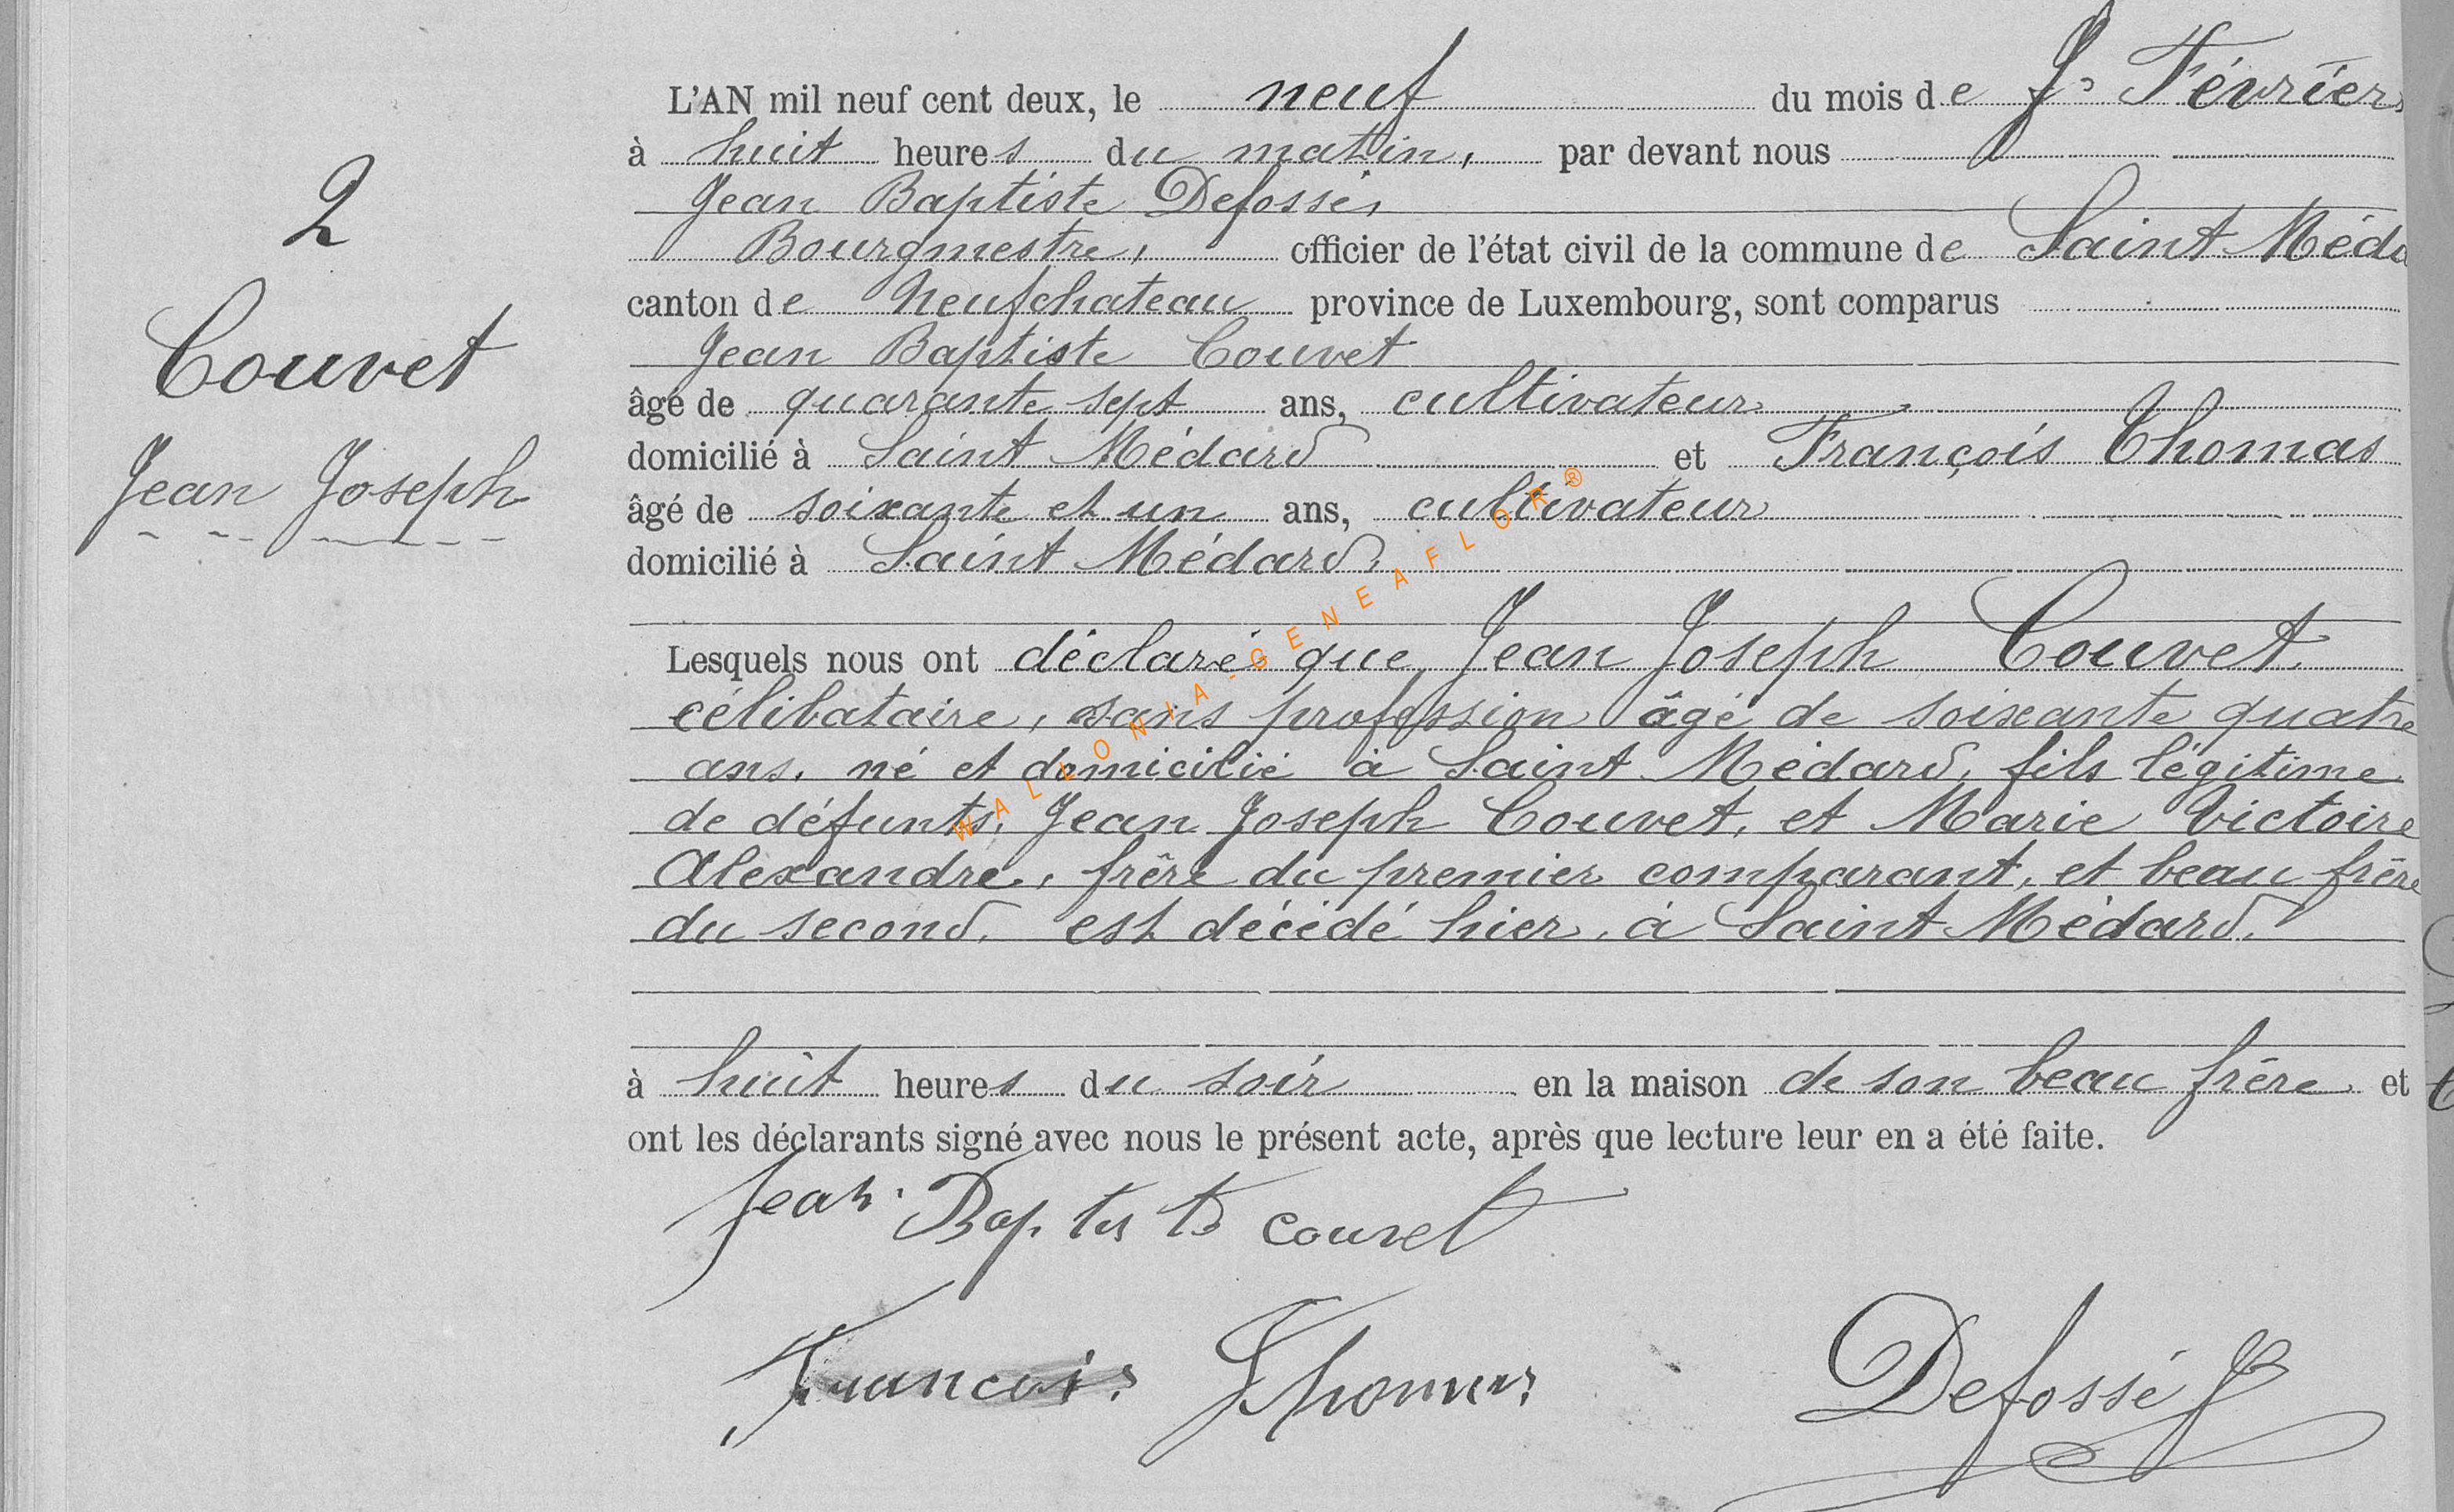 L'AN mil neuf cent deux, le neuf du mois de Février
à huit heures du matin, par devant nous
Jean Baptiste Defossé,
Bourgmestre, officier de l'état civil de la commune de Saint Méda
canton de Neufchateau province de Luxembourg, sont comparus
Jean Baptiste Couvet
âgé de quarante sept ans, cultivateur
domicilié à Saint Médard et François Thomas
âgé de soixante et un ans, cultivateur
domicilié à Saint Médard,
Lesquels nous ont déclaré que, Jean Joseph Couvet,
célibataire, sans profession âgé de soixante quatre
ans, né et domicilié à Saint Médard, fils légitime
de défunts, Jean Joseph Couvet, et Marie Victoire
Alexandre, frère du premier comparant, et beau frère
du second, est décédé hier, à Saint Médard,
à huit heures du soir en la maison de son beau frère et
ont les déclarants signé avec nous le présent acte, après que lecture leur en a été faite.
Jean Baptiste couvet
Francois Thomas
Defossé JB
2
Couvet
Jean Joseph
WALLONIA-GENEAFLOR®